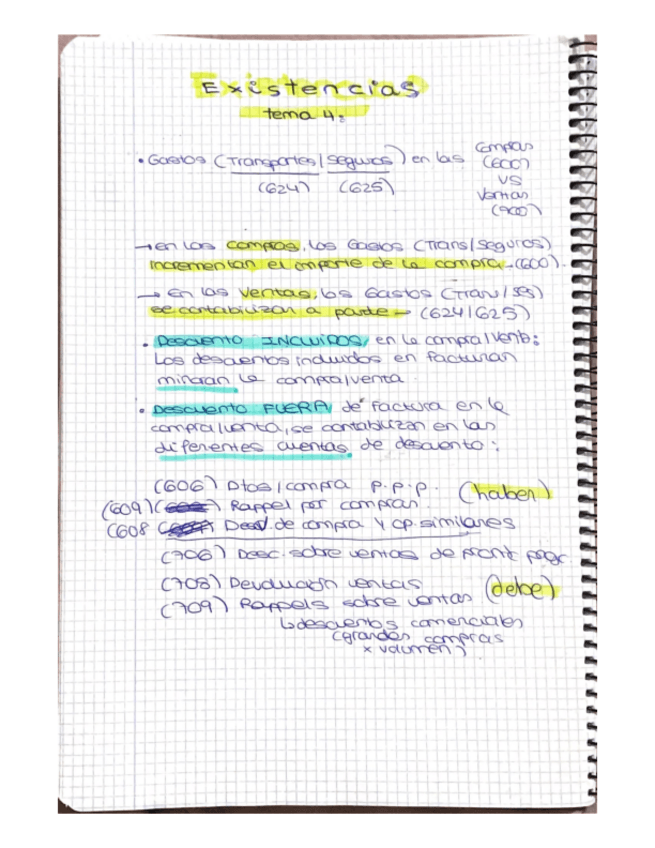 Existencias
tema 4:
• Gastos (Transportes/seguros) en las compras (600) vs ventas (900)
(624) (625)
→ en las compras, los Gastos (Trans/Seguros)
incrementan el importe de la compra. (600).
→ En las ventas, los Gastos (Tran/seg)
se contabilizan a parte → (624/625)
• Descuento INCLUIDOS, en la compra/venta:
Los descuentos incluidos en facturan
minoran la compra/venta
• Descuento FUERA de factura en la
compra/venta, se contabilizan en las
diferentes cuentas de descuento:
(606) Dtos/compra p.p.p. (haber)
(609) Rappel por compras
(608 Dev. de compra y op. similares
(706) Desc. sobre ventas de pront pago
(708) Devolución ventas (debe)
(709) Rappels sobre ventas
↳ descuentos comerciales
(grandes compras
x volumen)